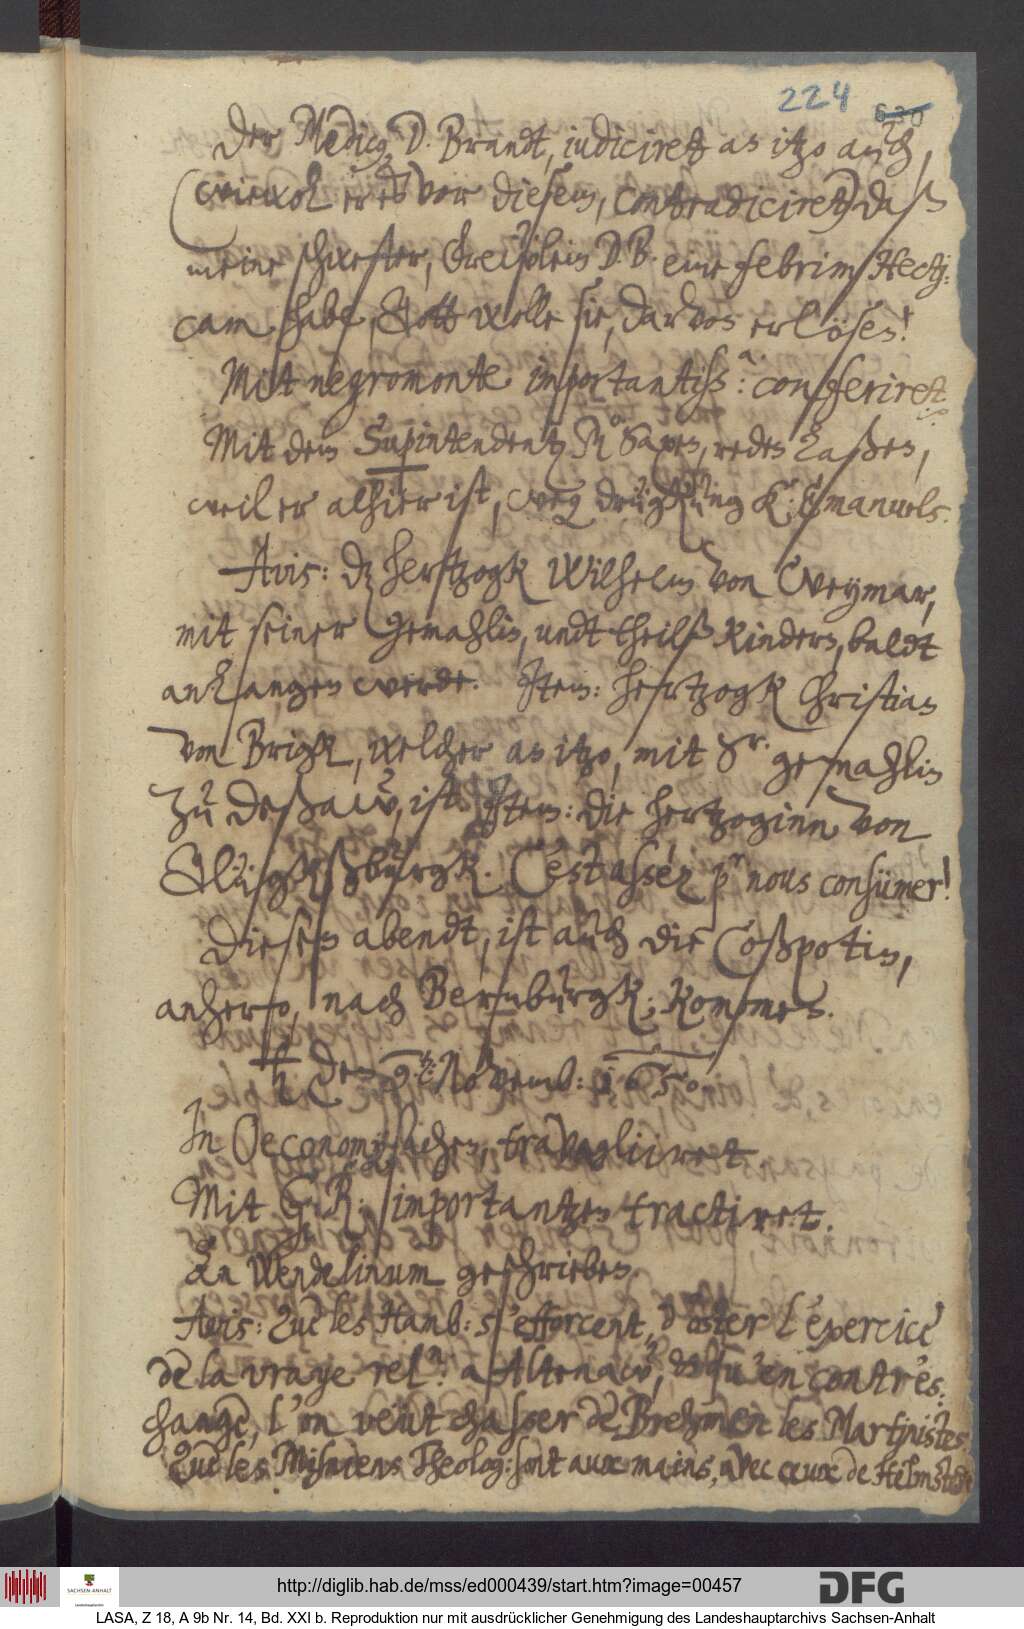 224 630
Der Medicus, D. Brandt, iudiciret an itzo auch,
(wiewol er es vor diesem, contradiciret) daß
meine schwester, Freulein D. B. eine febrim Hecti-
cam habe, Gott wolle sie, darvon erlösen!
Mit negromonte importantissima: conferiret
Mit dem Supintendenten Saxen, reden laßen,
weil er alhier ist, weg drügkung K: Emanuels.
Avis: dz hertzogk Wilhelm von Weymar,
mit seiner Gemahlin, undt theilß Kindern, baldt
anlangen werde. Item: hertzogk Christian
von Brigk, welcher an itzo, mit Sr. gemahlin
zu Deßaw, ist. Item: die hertzoginn von
Glügkßburgk. C'est assèz pr nous consümer!
Diesen abendt, ist auch die Coßpotin,
anhero, nach Bernburgk; kommen.
den 9. Novemb: 1650.
In Oeconomysachen, travagliiret.
Mit G. R: importantzen tractiret.
An Wendelinum geschrieben.
Avis: Que les Hamb: s'efforcent, d'oster l'exercice
de la vraye relon: a Altenaw, & qu'en contr'es-
change, l'on veut chasser de Brehmen les Martinistes.
Que les Misniens Theolog: sont aux mains, avec ceux de Helmstedt
http://diglib.hab.de/mss/ed000439/start.htm?image=00457
DFG
SACHSEN-ANHALT
LASA, Z 18, A 9b Nr. 14, Bd. XXI b. Reproduktion nur mit ausdrücklicher Genehmigung des Landeshauptarchivs Sachsen-Anhalt